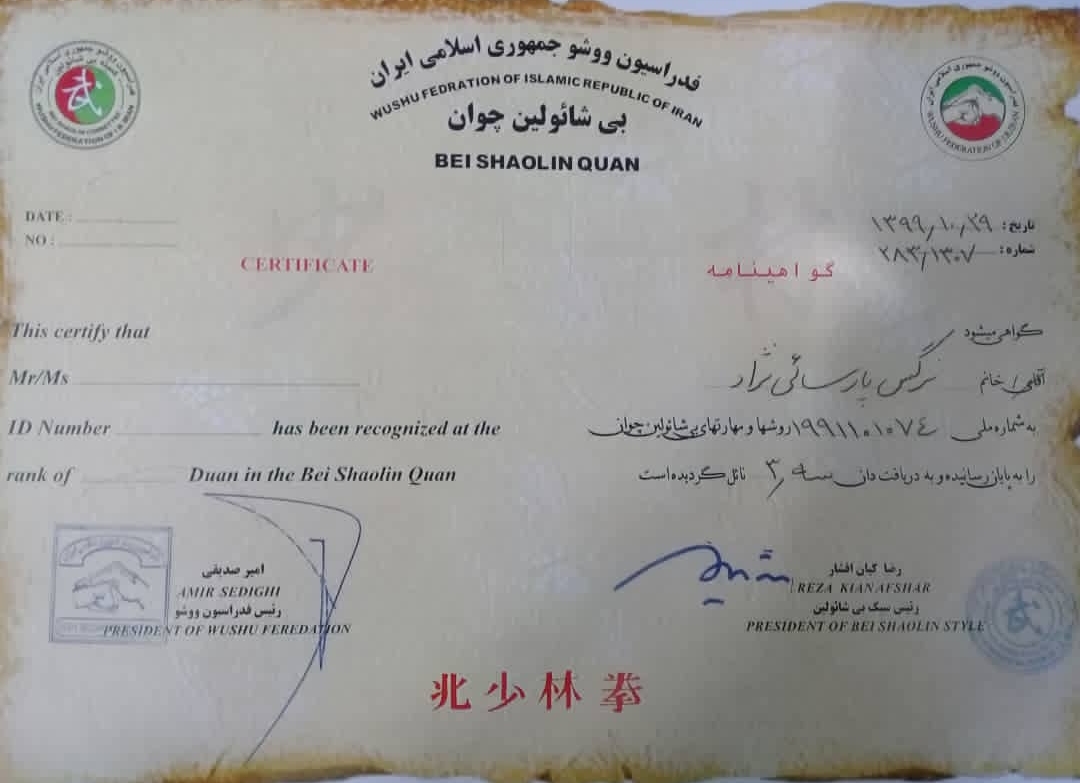 فدراسیون ووشو جمهوری اسلامی ایران
WUSHU FEDRATION OF ISLAMIC REPUBLIC OF IRAN
بی شائولین چوان
BEI SHAOLIN QUAN
DATE :
NO :
تاریخ: ۱۳۹۹/۱۰/۲۹
شماره: ۲۸۳/۱۳۰۷
CERTIFICATE
گواهینامه
This certify that
گواهی میشود
Mr/Ms
آقای/خانم نرگس پارسائی نژاد
ID Number has been recognized at the
به شماره ملی ۱۹۹۱۱۰۱۰۷۴ روشها و مهارتهای بی شائولین چوان
rank of Duan in the Bei Shaolin Quan
را به پایان رسانیده و به دریافت دان سه ۳ نائل گردیده است
امیر صدیقی
AMIR SEDIGHI
رئیس فدراسیون ووشو
PRESIDENT OF WUSHU FEREDATION
رضا کیان افشار
REZA KIANAFSHAR
رئیس سبک بی شائولین
PRESIDENT OF BEI SHAOLIN STYLE
北少林拳